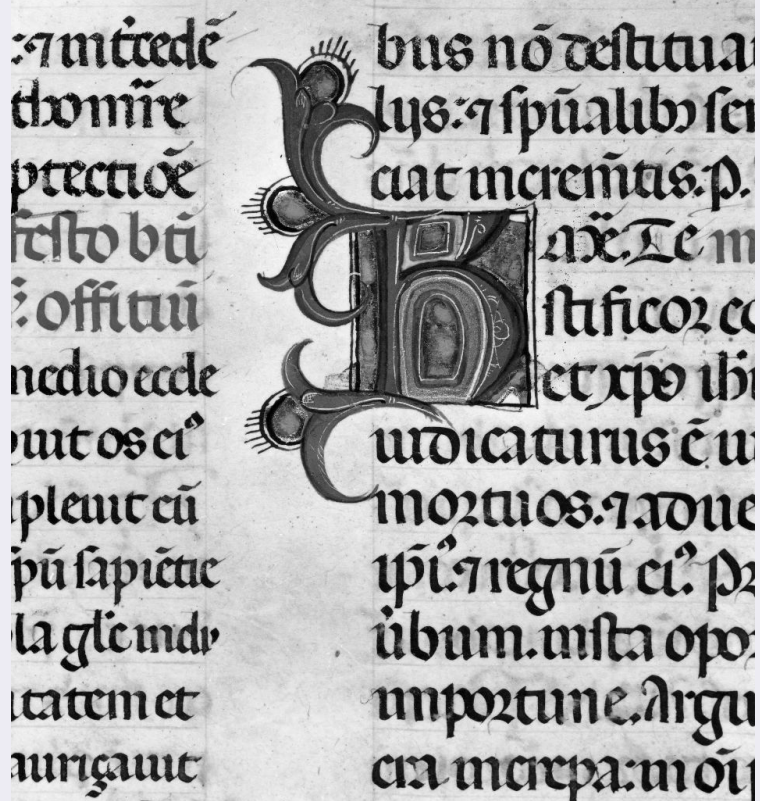 :⁊ int̃cedẽ
ptectiõe
festo bt̃i
offitiũ
medio eccle
ruit os ei⁹
pleuit cũ
spũ sapiẽtie
la gl̃e indu
tatem et
auriçauit
bus nõ destitua
lijs:⁊ spũalibꝫ
ciat increm̃tis. P.
Kaxẽ. Te
stificor co
et xp̃o ih̃u
iudicaturus ẽ ui
mortuos.⁊ adue
ip̃i⁹.⁊ regnũ ei⁹. Pre
ũbum. insta opo
inportune. Argu
cra increpa: in õi